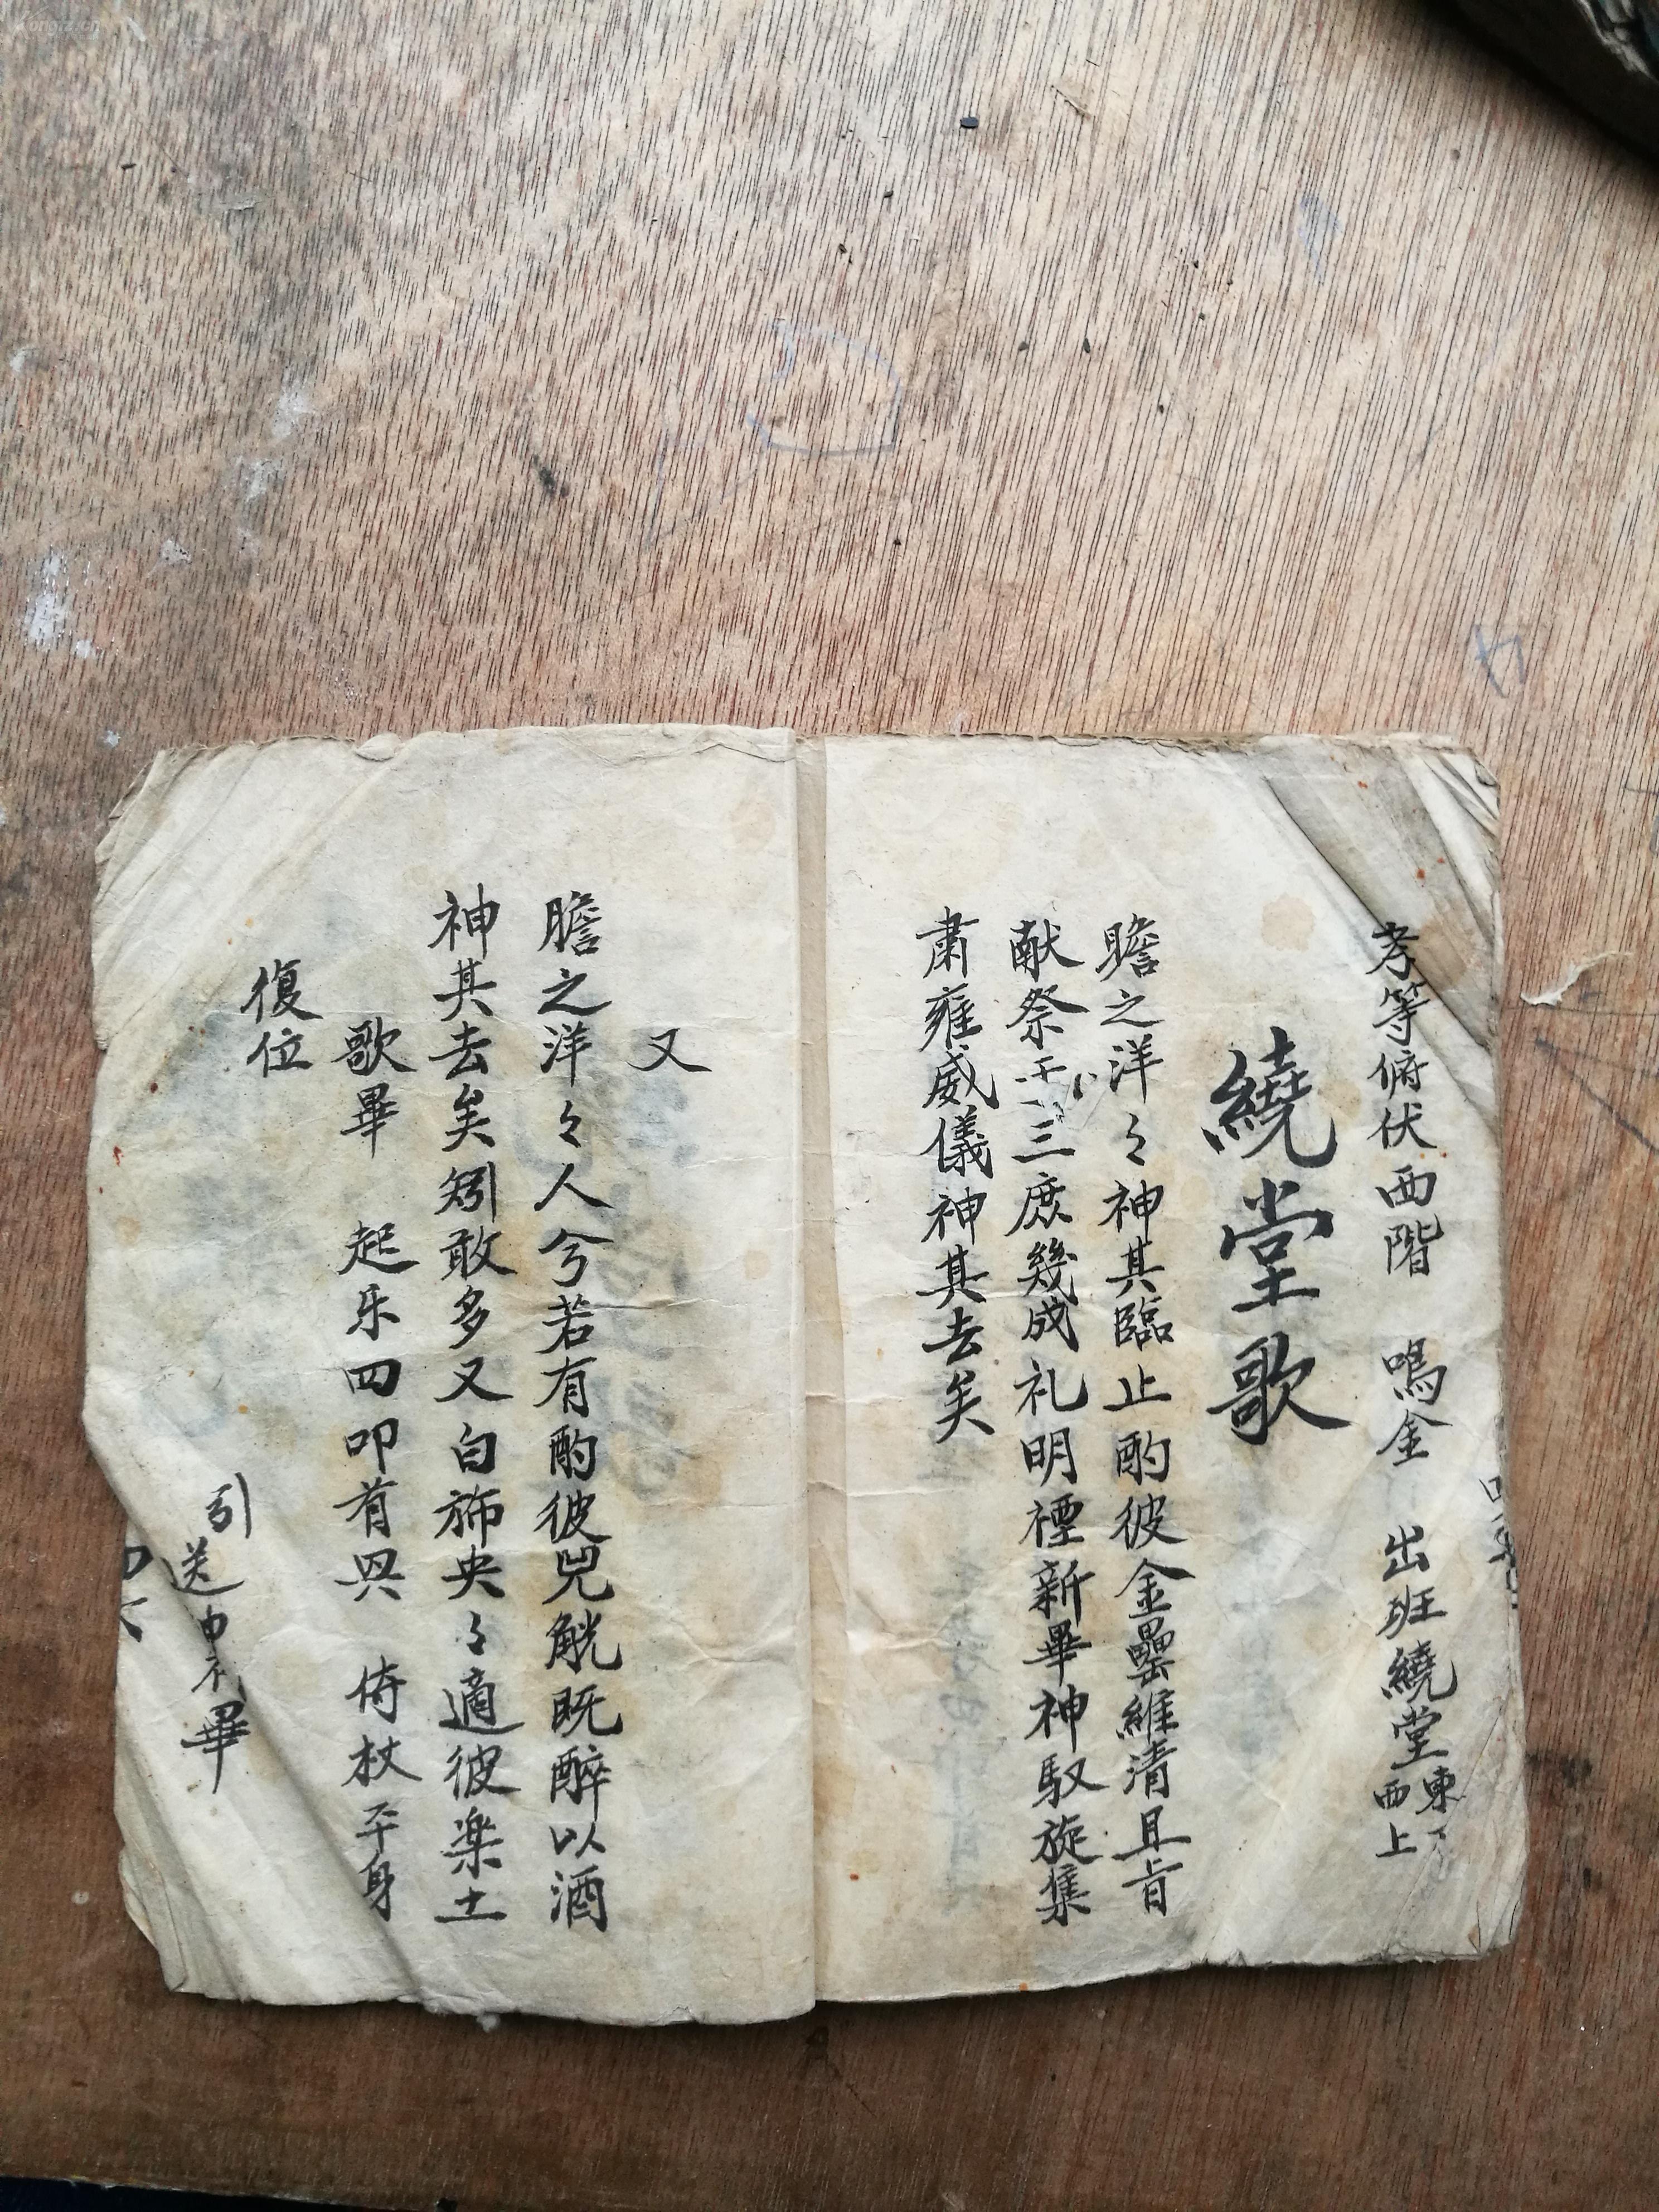 孝等俯伏西階 鳴金 出班繞堂東西上
繞堂歌
瞻之洋々神其臨止酌彼金罍維清且旨
献祭三庶幾成礼明禋新畢神馭旋集
肅雍威儀神其去矣
又
瞻之洋々人兮若有酌彼兕觥既醉以酒
神其去矣矧敢多又白斾央々適彼楽土
歌畢 起乐四叩首興 倚杖平身
復位
引送中礼畢
kongfz.cn